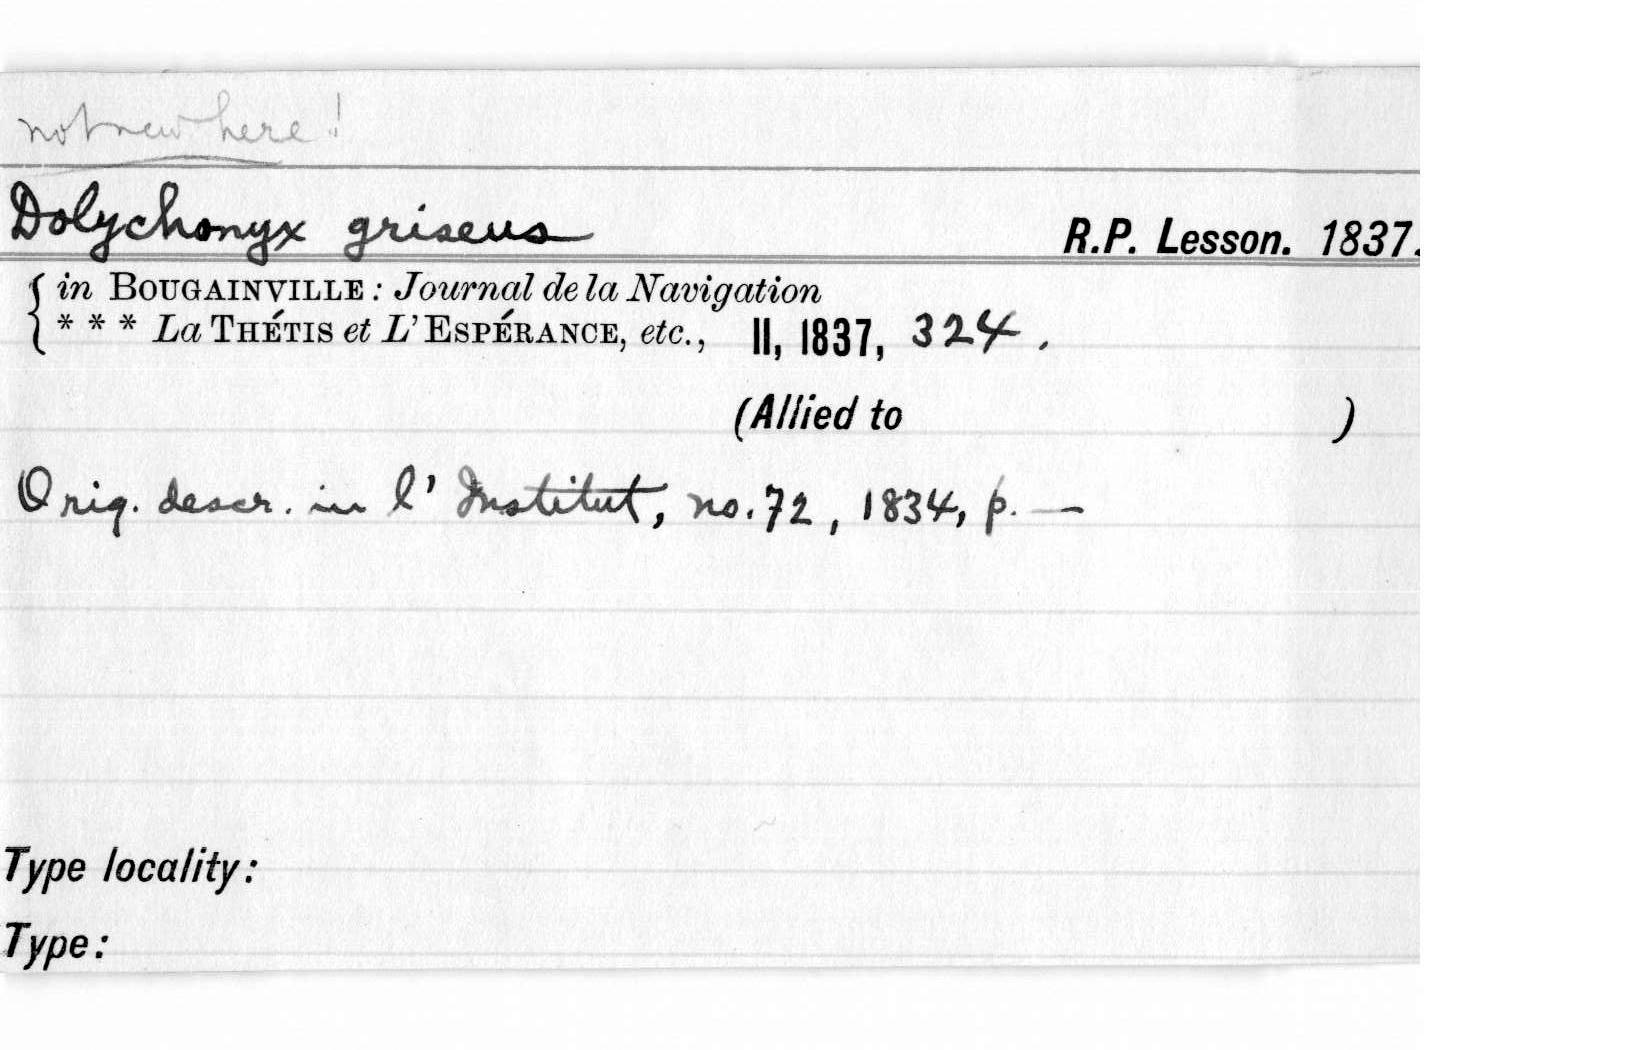 not new here!
Dolychonyx griseus R.P. Lesson. 1837.
{ in BOUGAINVILLE: Journal de la Navigation
* * * La THÉTIS et L'ESPÉRANCE, etc., II, 1837, 324.
(Allied to )
Orig. descr. in l'Institut, no. 72, 1834, p. —
Type locality:
Type: